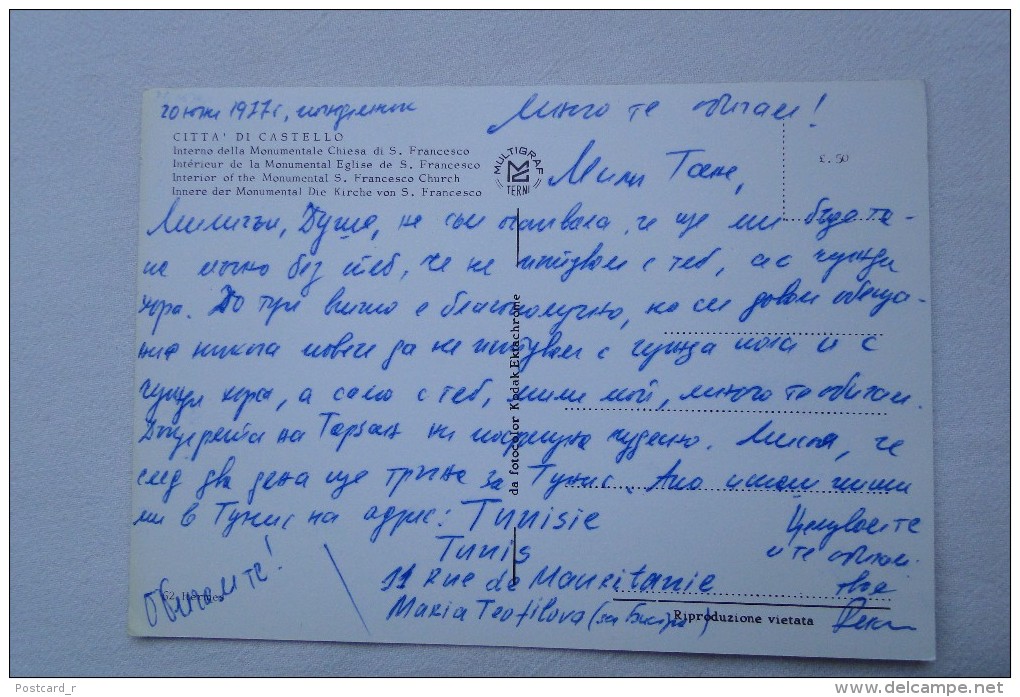 20 юни 1977 г, понделник
Много те обичам!
CITTA' DI CASTELLO
Interno della Monumentale Chiesa di S. Francesco
Intérieur de la Monumental Eglise de S. Francesco
Interior of the Monumental S. Francesco Church
Innere der Monumental Die Kirche von S. Francesco
MULTIGRAF
TERNI
£. 50
Мили Тоне,
Миличък, Душо, не съм очаквала, че ще ми бъде та-
ка мъчно без теб, че не пътувам с теб, а с чужди
хора. До тук всичко е благополучно, но си давам обеща-
ние никога повече да не пътувам с чужда кола и с
чужди хора, а само с теб, мили мой, много те обичам.
на Тарзан ни посрещна чудесно. Мисля, че
след два дена ще тръгна за Тунис. Ако имаш пиши
ми в Тунис на адрес: Tunisie
Tunis
11 Rue de Mauritanie
Maria Teofilova
Целувам те
и те обичам.
твоя
Обичам те!
da fotocolor Kodak Ektachrome
Riproduzione vietata
Postcard_r
www.delcampe.net